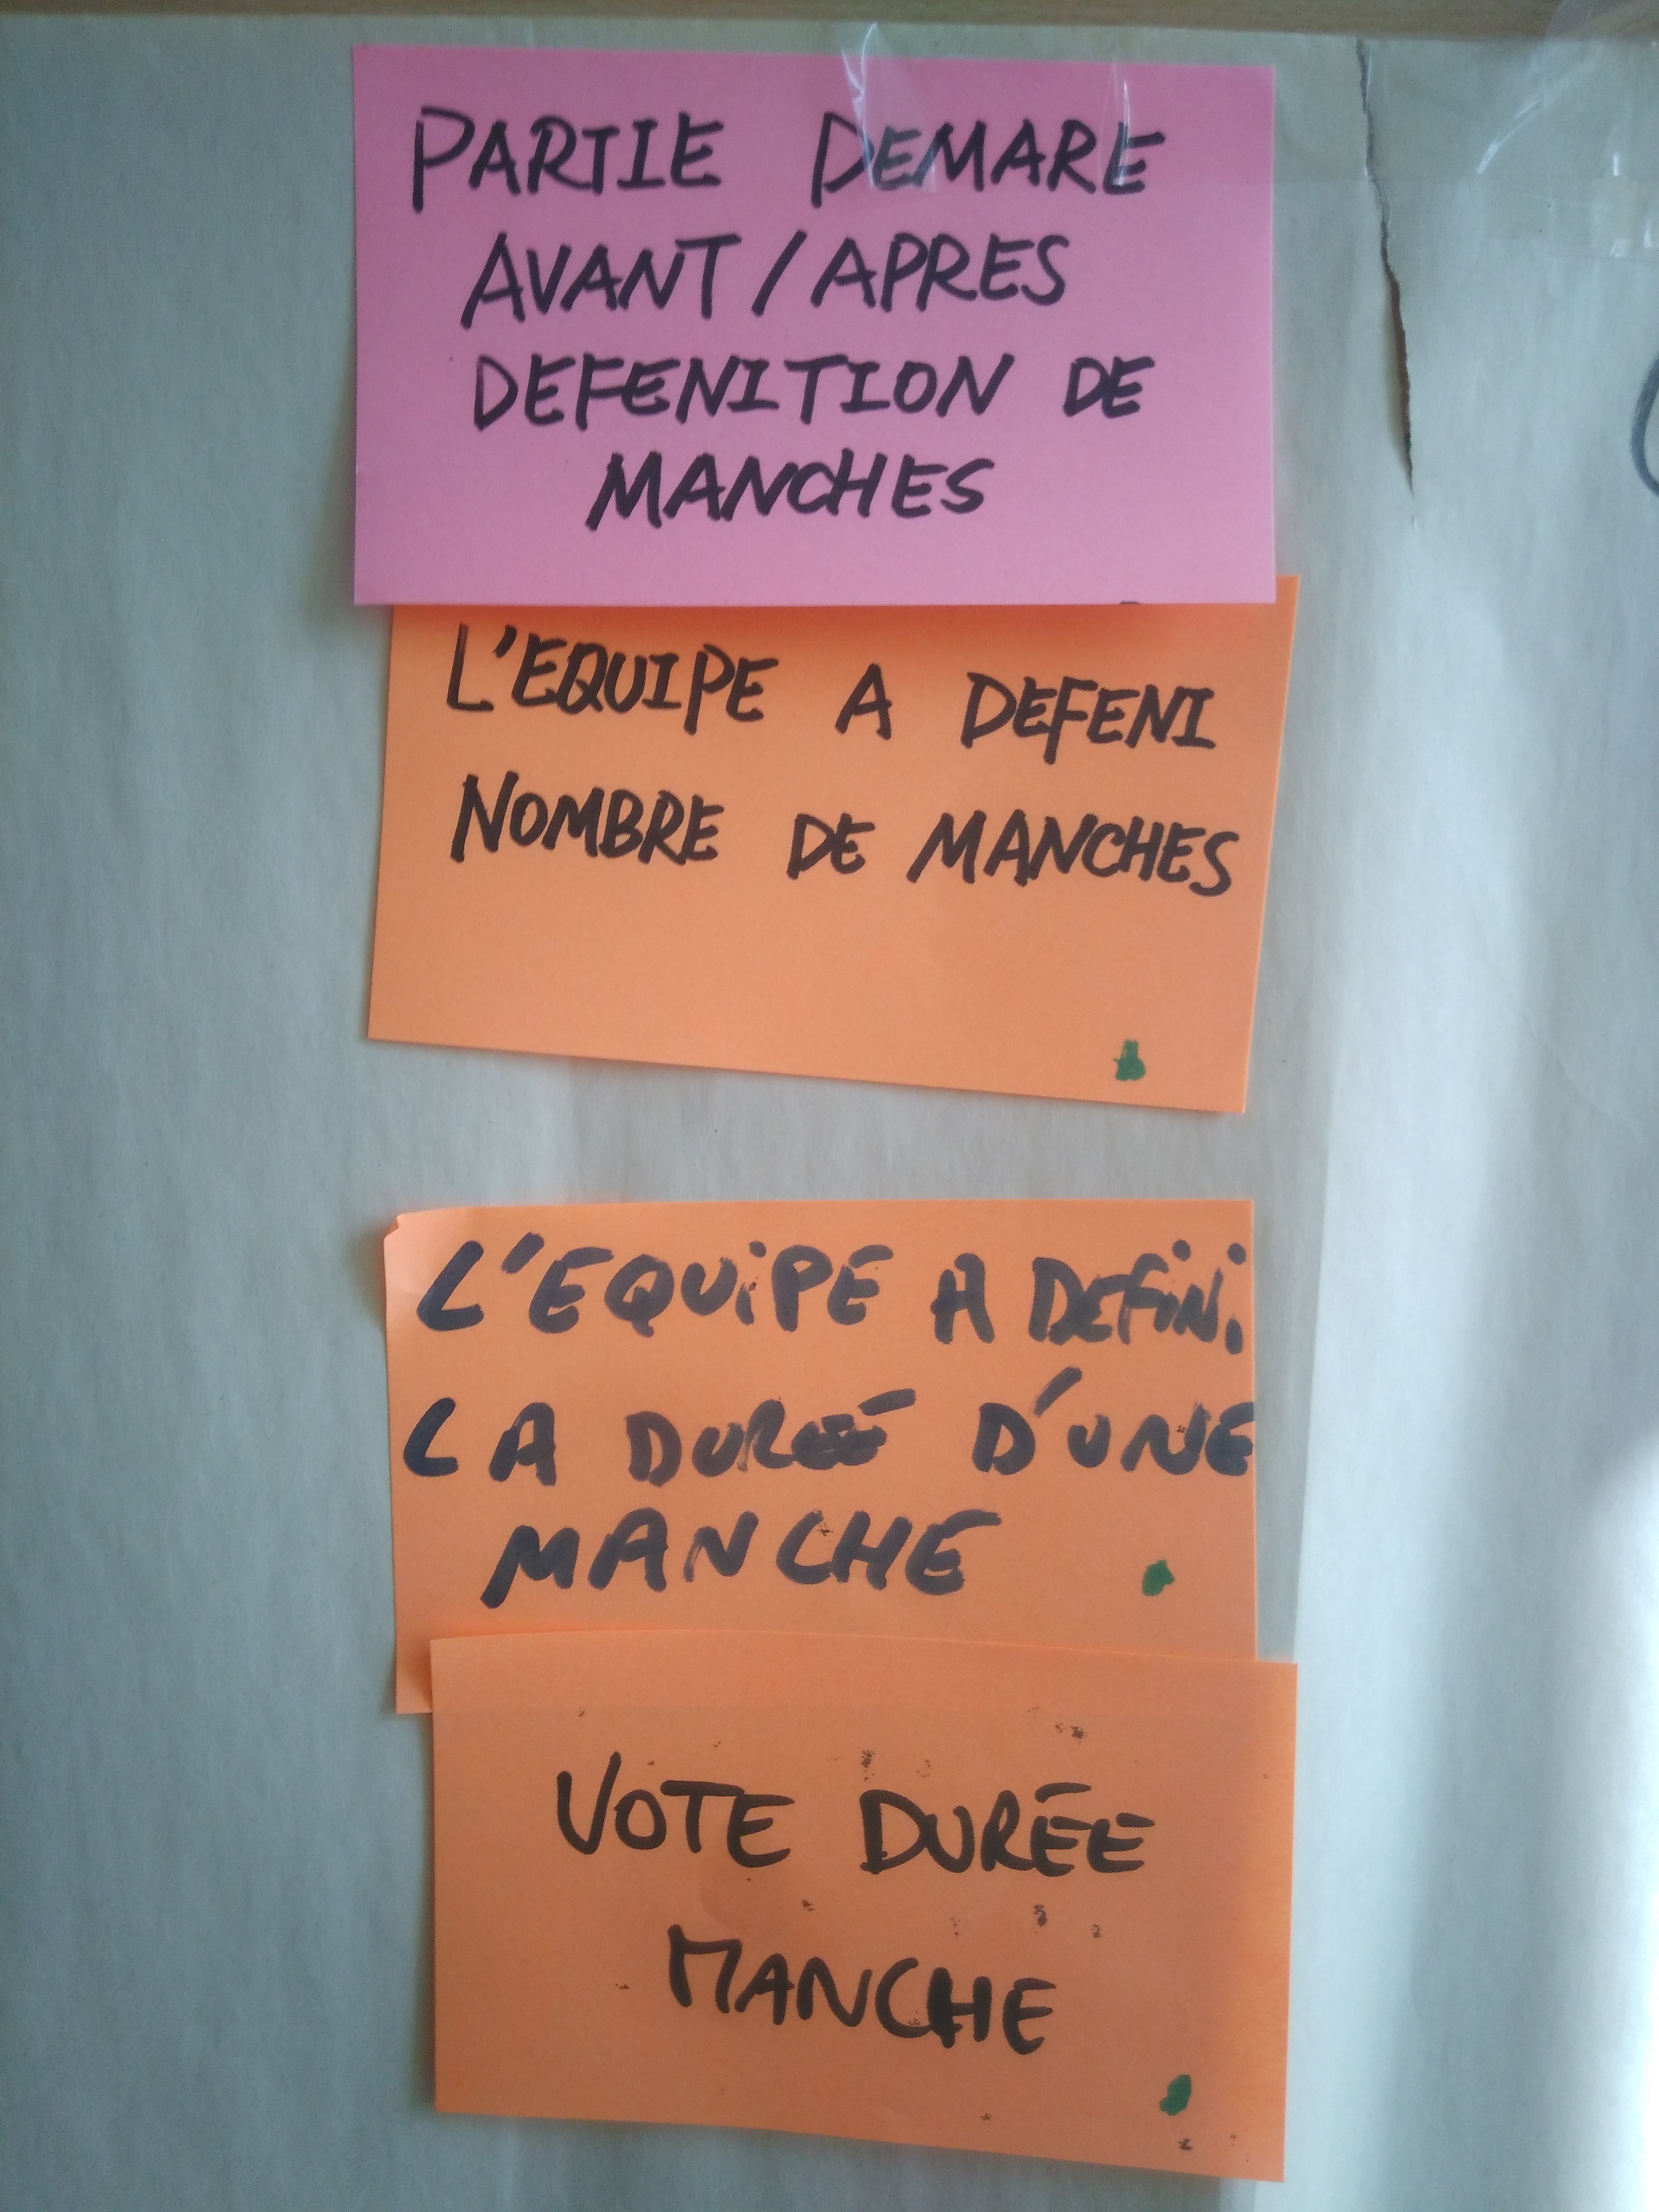 PARTIE DEMARE
AVANT / APRES
DEFENITION DE
MANCHES
L'EQUIPE A DEFENI
NOMBRE DE MANCHES
L'EQUiPE A DEFiNi
LA DUREÉ D'UNE
MANCHE
VOTE DURÉE
MANCHE